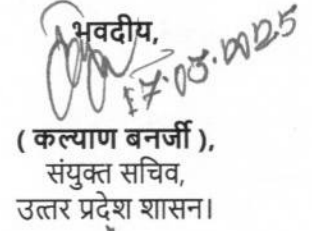 भवदीय,
17.03.2025
( कल्याण बनर्जी ),
संयुक्त सचिव,
उत्तर प्रदेश शासन।